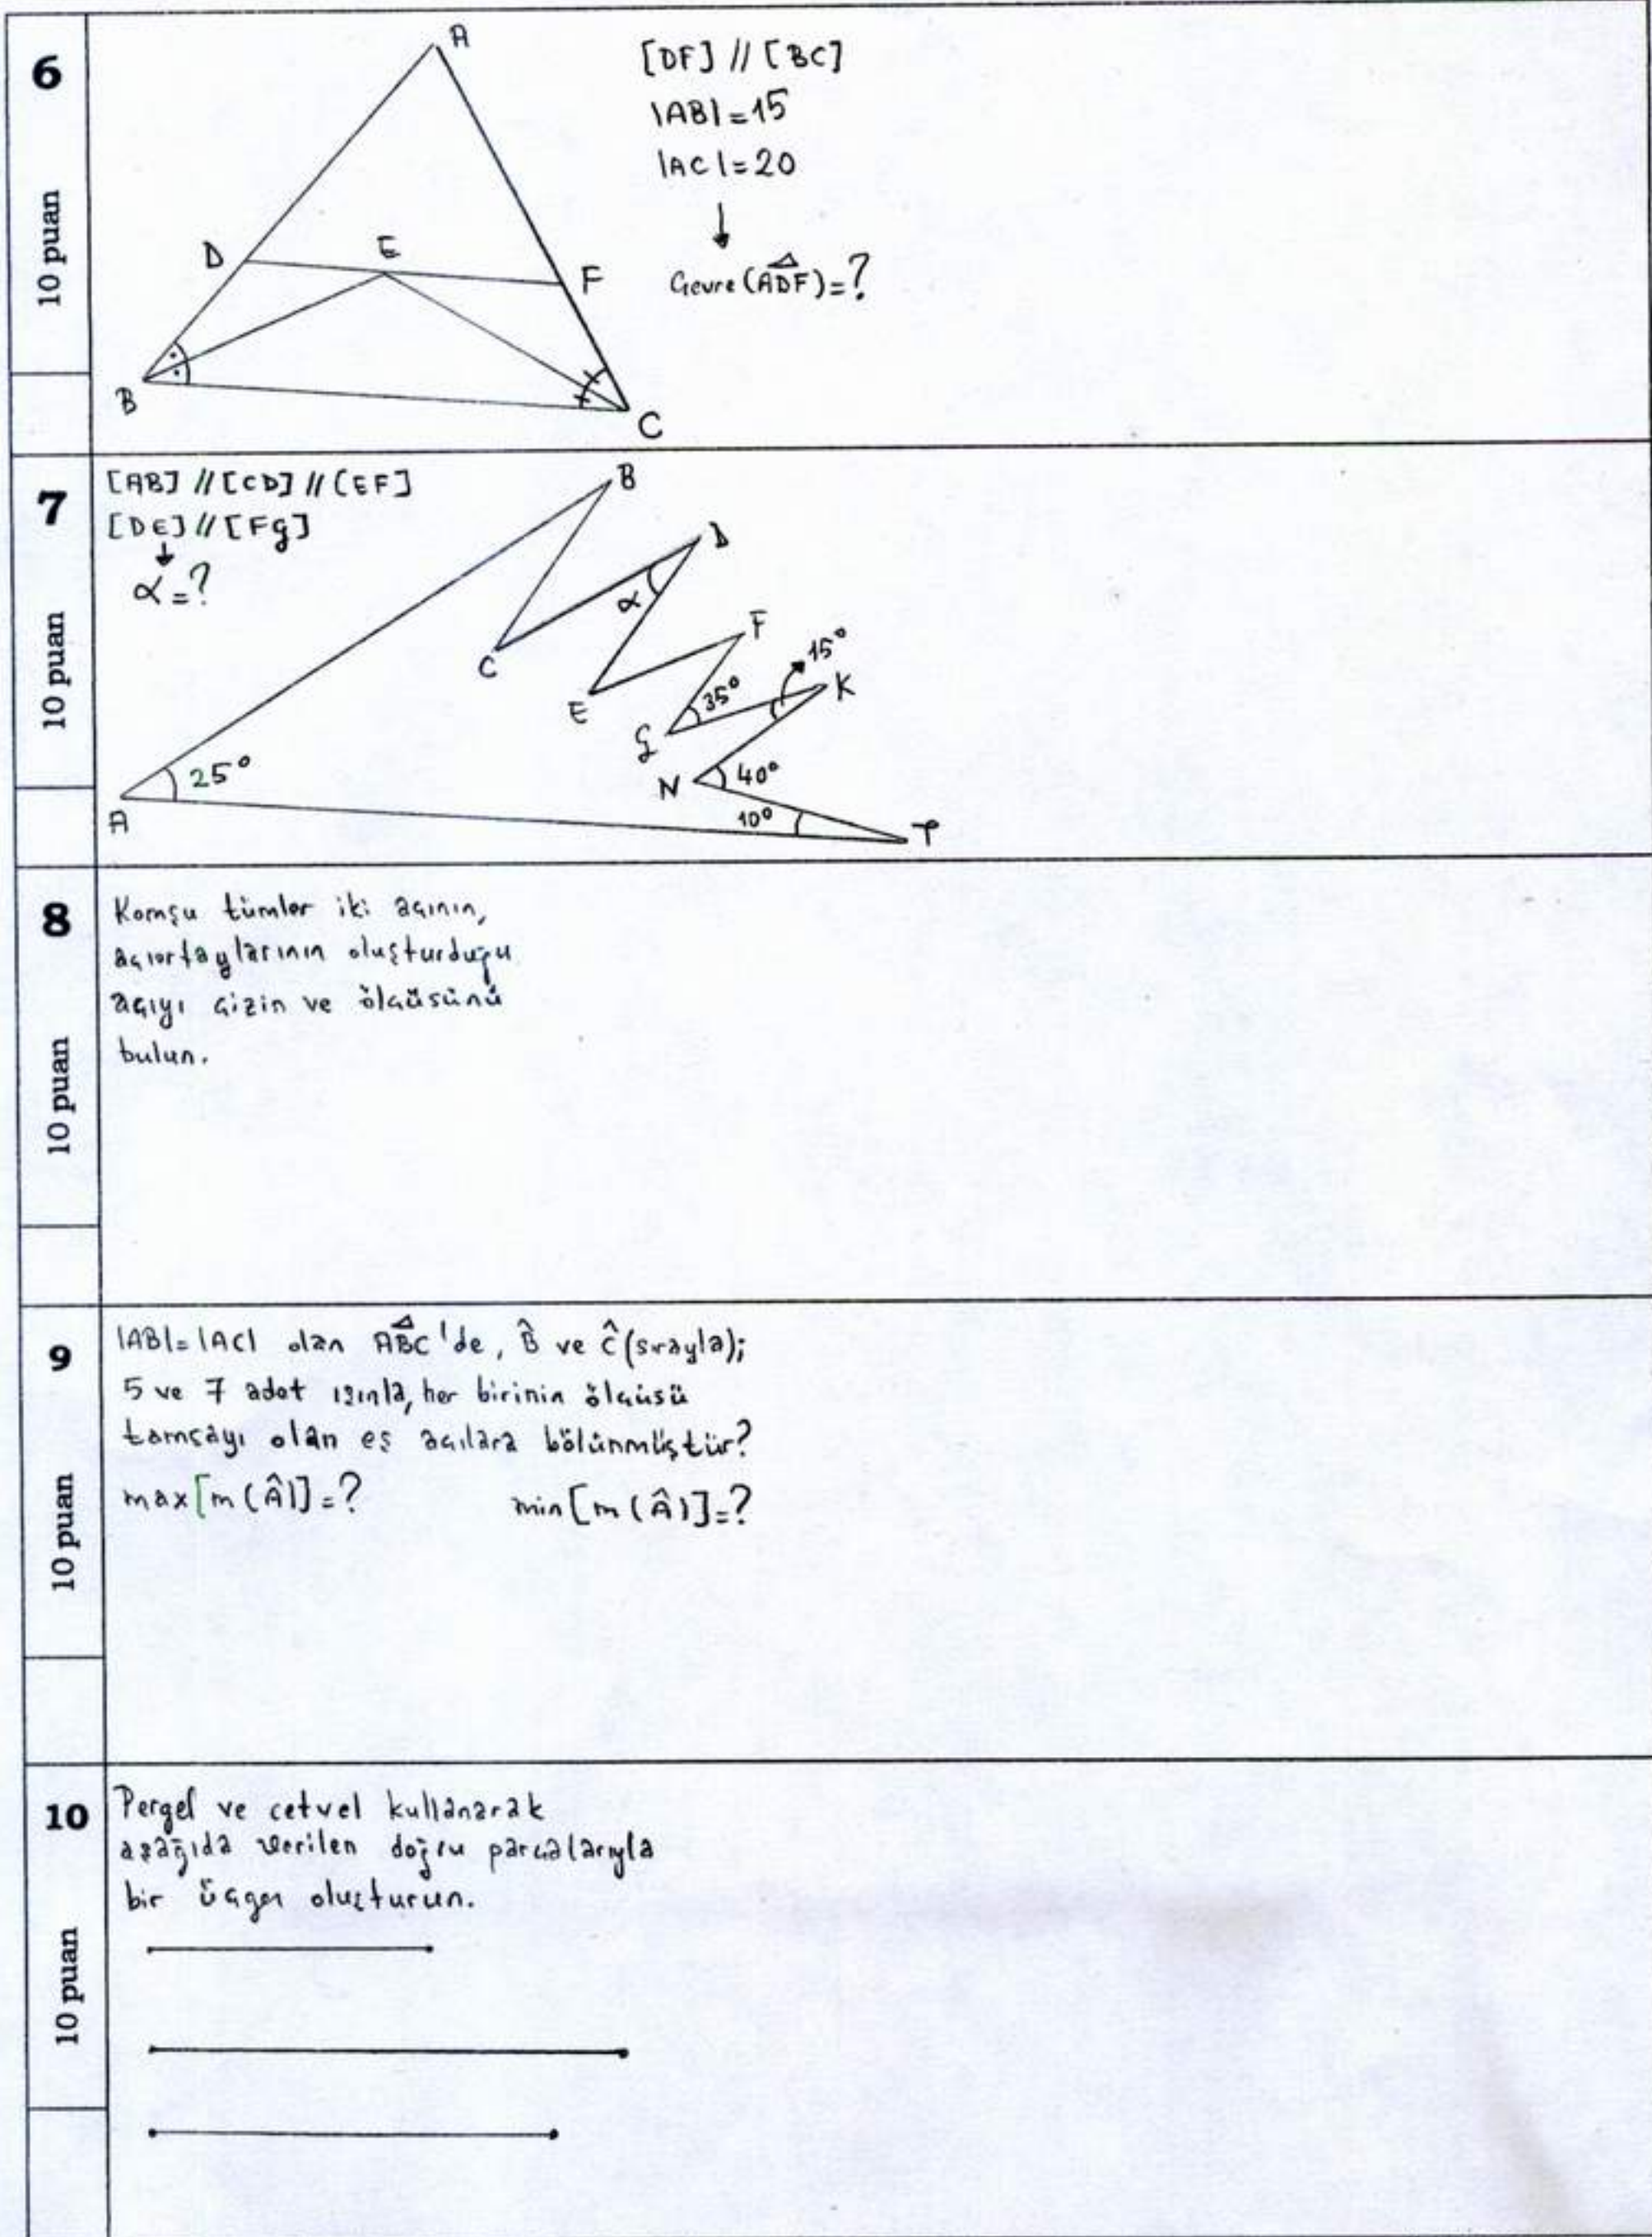 6
10 puan
A
D
E
F
B
C
[DF] // [BC]
|AB| = 15
|AC| = 20
↓
Çevre (ADF) = ?
7
10 puan
[AB] // [CD] // [EF]
[DE] // [FG]
↓
α = ?
B
D
α
C
F
15°
E
35°
K
G
N
40°
25°
A
10°
T
8
10 puan
Komşu tümler iki açının,
açıortaylarının oluşturduğu
açıyı çizin ve ölçüsünü
bulun.
9
10 puan
|AB| = |AC| olan ABC'de, B̂ ve Ĉ (sırayla);
5 ve 7 adet ışınla, her birinin ölçüsü
tamsayı olan eş açılara bölünmüştür?
max[m(Â)] = ? min[m(Â)] = ?
10
10 puan
Pergel ve cetvel kullanarak
aşağıda verilen doğru parçalarıyla
bir üçgen oluşturun.